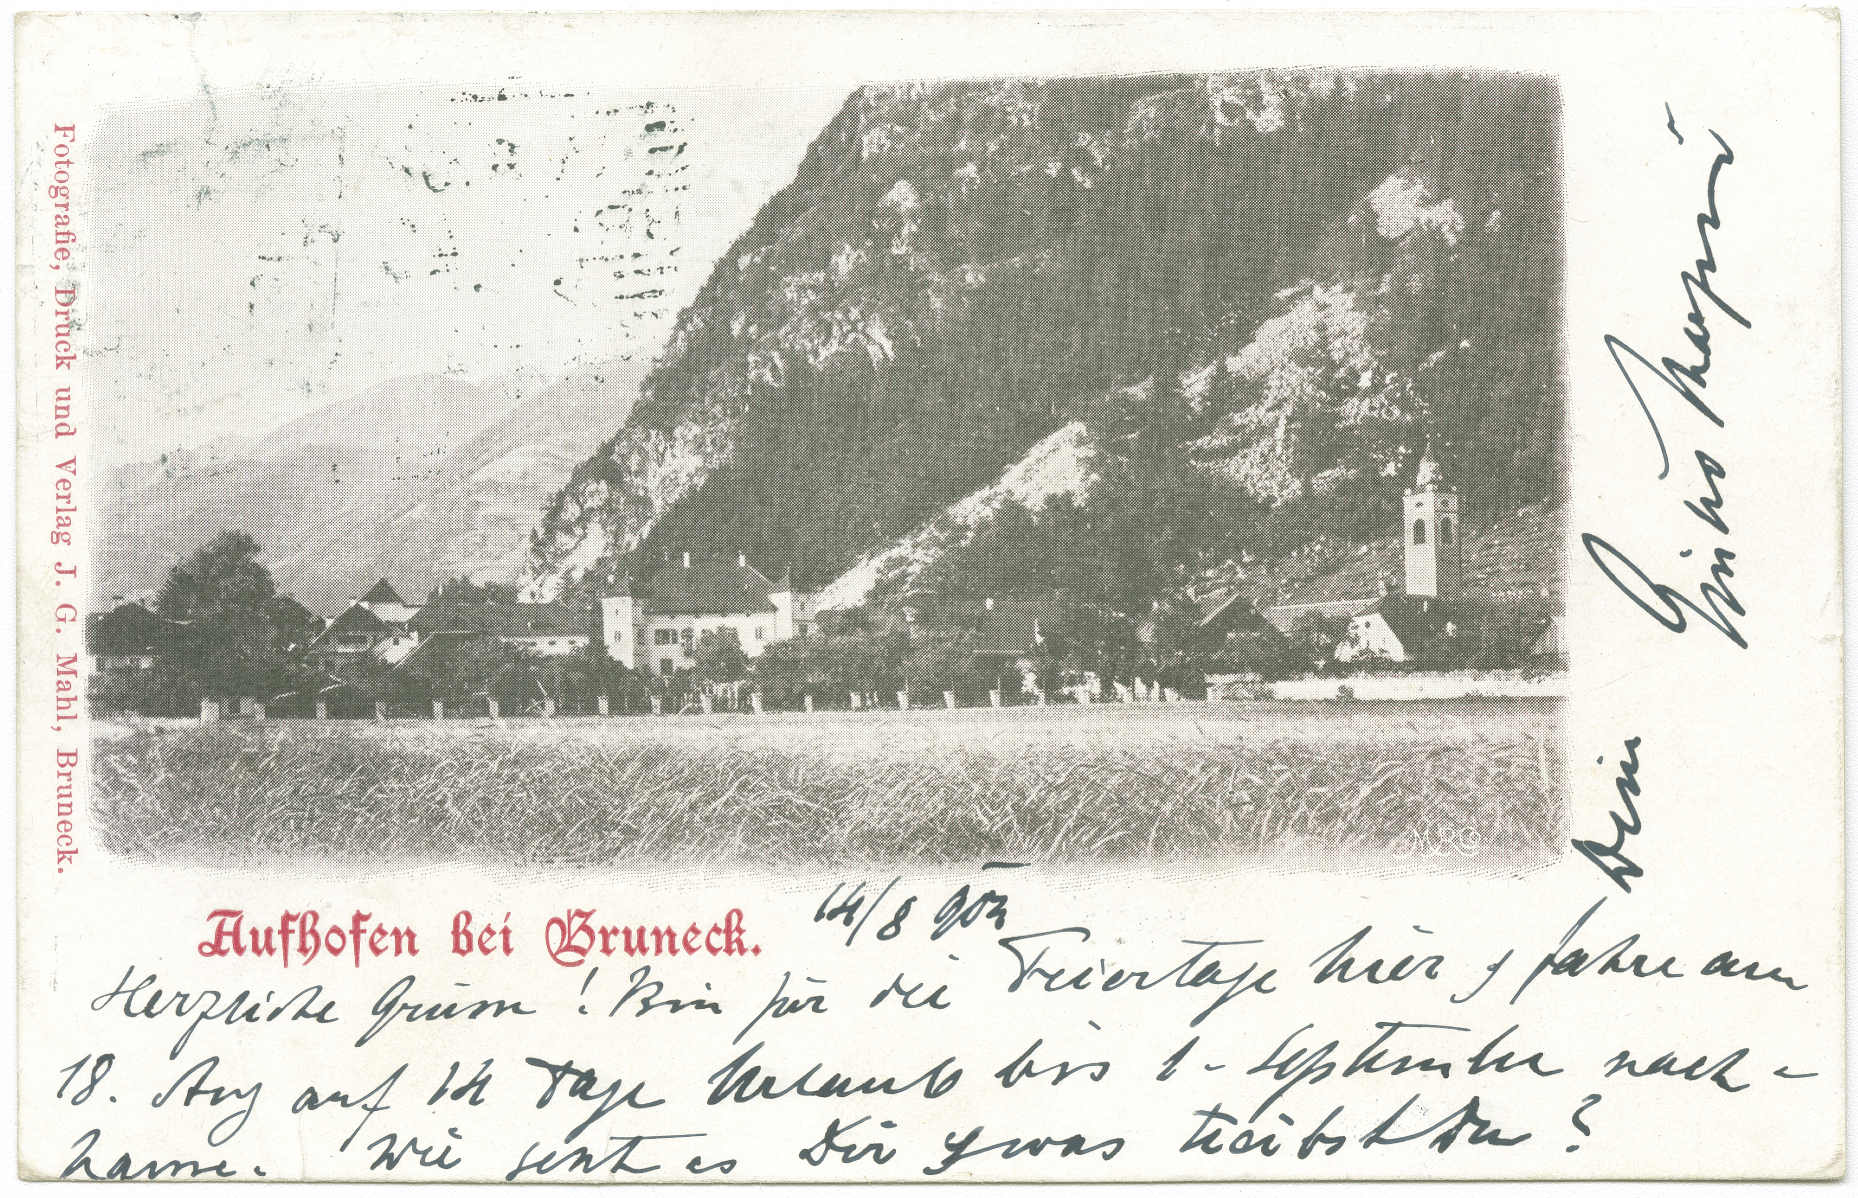 Fotografie, Druck und Verlag J. G. Mahl, Bruneck.
MRG
Aufhofen bei Bruneck.
14/8 902
Herzliche Grüsse! Bin für die Feiertage hier & fahre am
18. Aug auf 14 Tage Urlaub bis 1. September nach-
hause. Wie geht es Dir & was treibst Du?
Dein